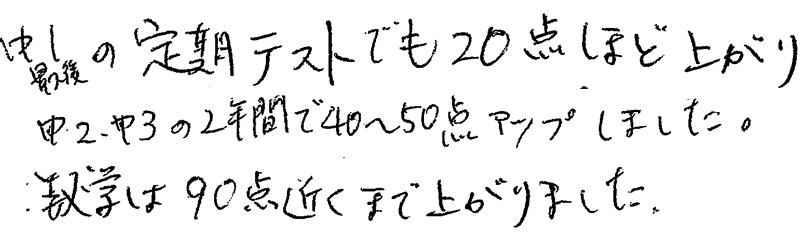 中1最後の定期テストでも20点ほど上がり
中2、中3の2年間で40〜50点アップしました。
数学は90点近くまで上がりました。